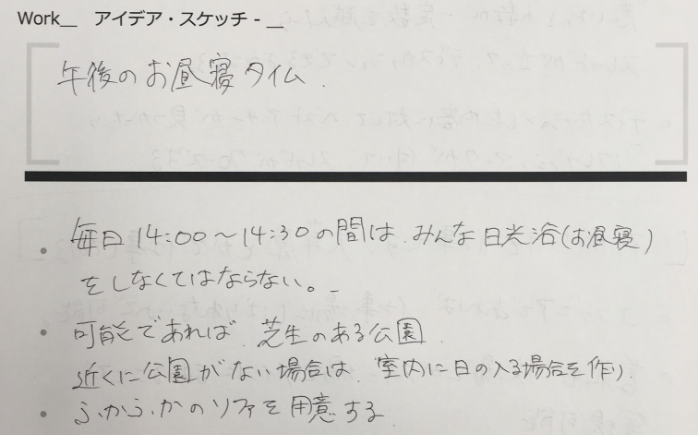 Work__ アイデア・スケッチ - __
午後のお昼寝タイム.
・毎日 14:00〜14:30の間は、みんな日光浴(お昼寝)
をしなくてはならない。
・可能であれば、芝生のある公園
近くに公園がない場合は、室内に日の入る場合を作り
・ふかふかのソファを用意する